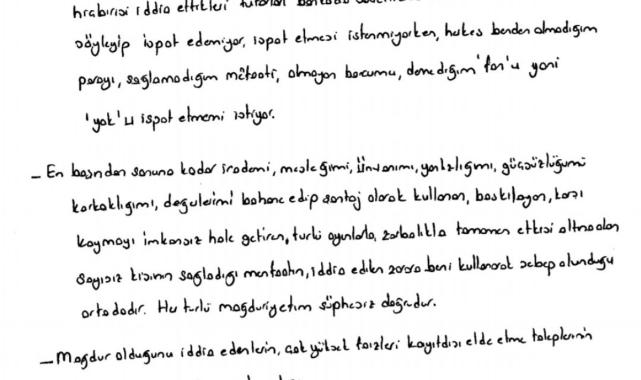 hiçbirisi iddia ettikleri
söyleyip ispat edemiyor, ispat etmesi istenmiyorken, herkes benden almadığım
parayı, sağlamadığım menfaati, olmayan borcumu, denediğim 'fon'u yani
'yok'u ispat etmemi istiyor.
– En başından sonuna kadar irademi, mesleğimi, ünvanımı, yalnızlığımı, güçsüzlüğümü
korkaklığımı, değerlerimi bahane edip şantaj olarak kullanan, baskılayan, karşı
koymayı imkansız hale getiren, türlü oyunlarla, zorbalıkla tamamen etkisi altına alan
sayısız kişinin sağladığı menfaatin, iddia edilen zarara beni kullanarak sebep olunduğu
ortadadır. Her türlü mağduriyetim şüphesiz doğrudur.
– Mağdur olduğunu iddia edenlerin, çok yüksek faizleri kayıtdışı elde etme taleplerinin